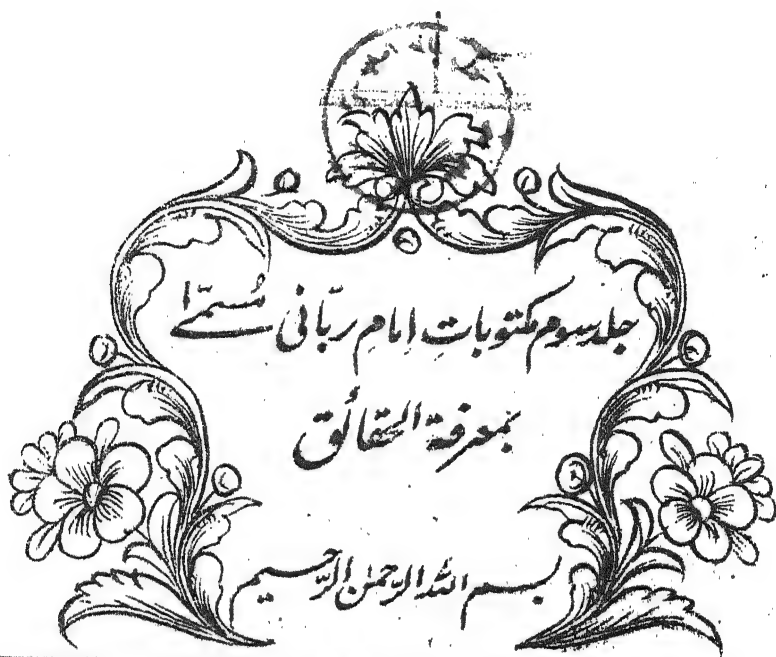 جلد سوم مکتوباتِ اِمامِ ربّانی مُسمّٰے
بمعرفة الحقائق
بسم الله الرّحمٰن الرّحیم